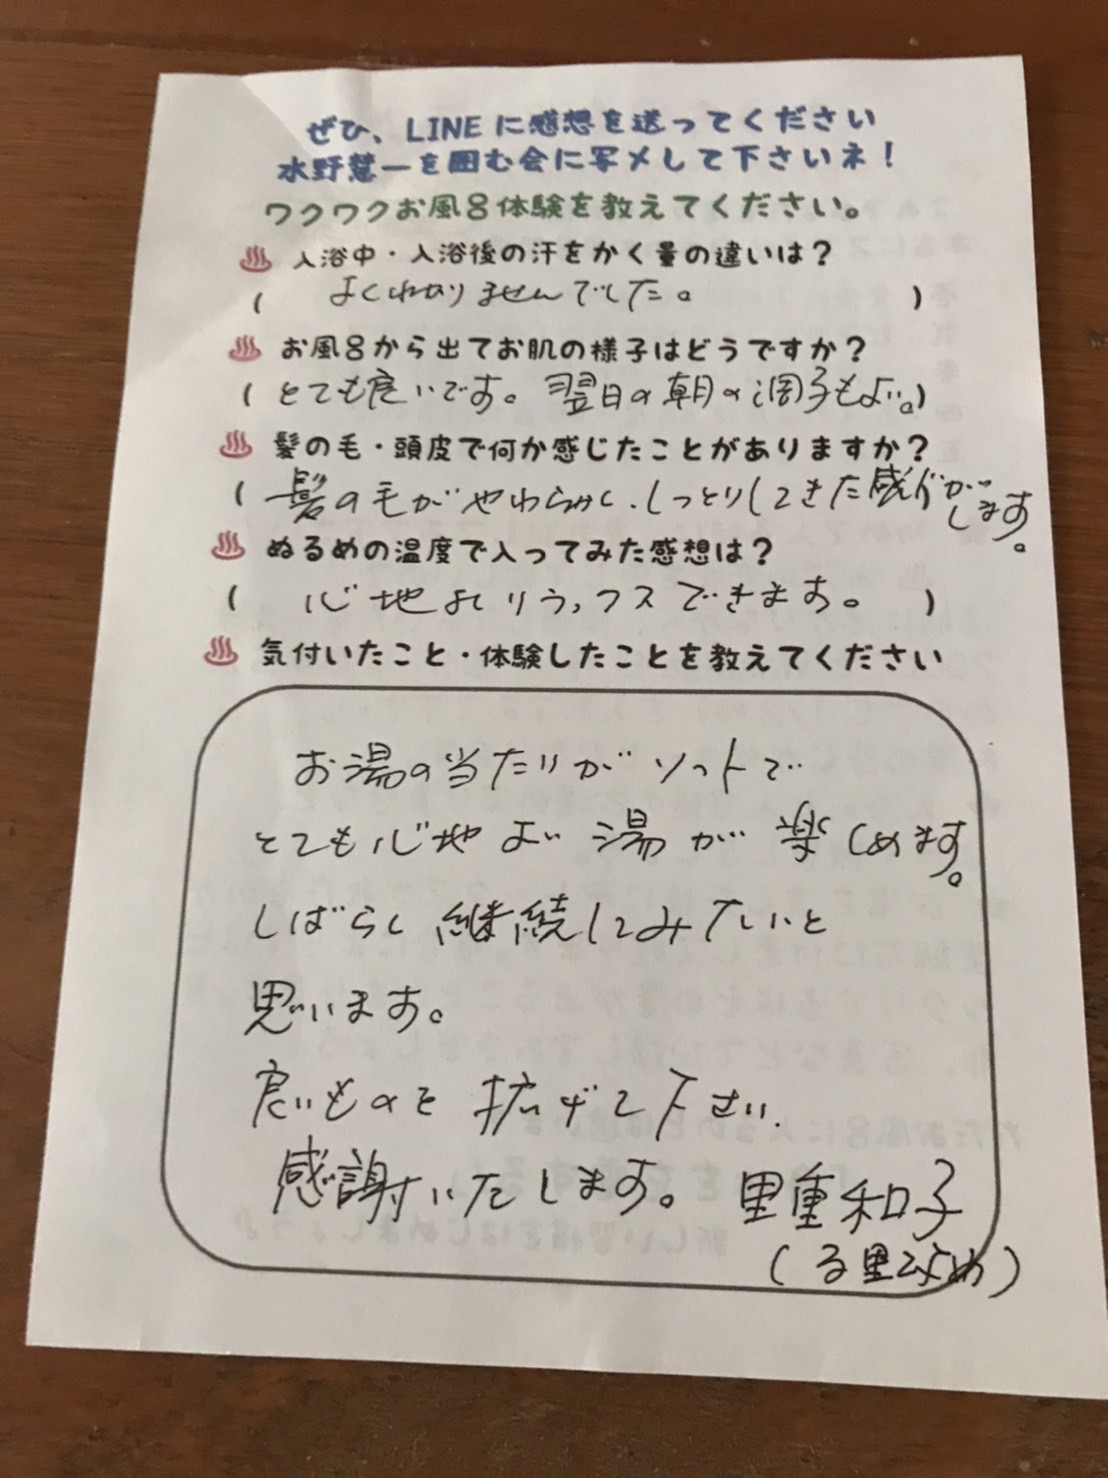 ぜひ、LINEに感想を送ってください
水野慧一を囲む会に写メして下さいネ！
ワクワクお風呂体験を教えてください。
入浴中・入浴後の汗をかく量の違いは？
（ よくわかりませんでした。 ）
お風呂から出てお肌の様子はどうですか？
（ とても良いです。翌日の朝の調子もよい。）
髪の毛・頭皮で何か感じたことがありますか？
（ 髪の毛がやわらかく、しっとりしてきた感じがします。
ぬるめの温度で入ってみた感想は？
（ 心地よくリラックスできます。 ）
気付いたこと・体験したことを教えてください
お湯の当たりがソフトで
とても心地よい湯が楽しめます。
しばらく継続してみたいと
思います。
良いものを拡げて下さい。
感謝いたします。 里重和子